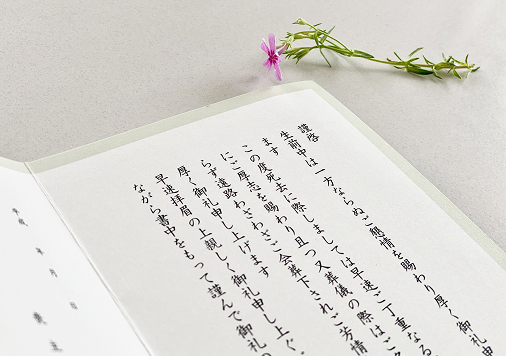 謹啓
生前中は一方ならぬご懇情を賜わり厚く御礼申
ます
この度死去に際しましては早速ご丁重なる
にご厚志を賜わり且つ又葬儀の際はご
らず遠路わざわざご会葬下されご芳情
厚く御礼申し上げます
早速拝眉の上親しく御礼申し上ぐ
ながら書中をもって謹んで御礼の